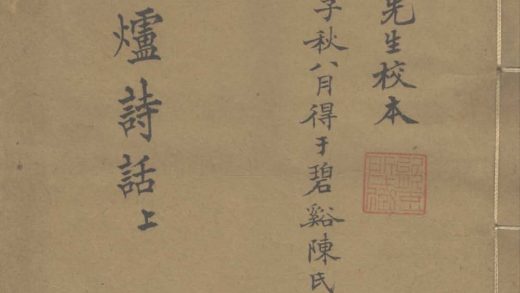 先生校本
子秋八月得于碧谿陳氏
爐詩話上